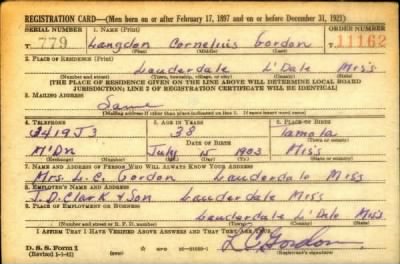 REGISTRATION CARD—(Men born on or after February 17, 1897 and on or before December 31, 1921)
SERIAL NUMBER 1. NAME (Print) ORDER NUMBER
T 779 Langdon Cornelius Gordon T 11162
(First) (Middle) (Last)
2. PLACE OF RESIDENCE (Print)
Lauderdale L'Dale Miss
(Number and street) (Town, township, village, or city) (County) (State)
[THE PLACE OF RESIDENCE GIVEN ON THE LINE ABOVE WILL DETERMINE LOCAL BOARD
JURISDICTION; LINE 2 OF REGISTRATION CERTIFICATE WILL BE IDENTICAL]
3. MAILING ADDRESS
Same
[Mailing address if other than place indicated on line 2. If same insert word same]
4. TELEPHONE 5. AGE IN YEARS 6. PLACE OF BIRTH
3419J3 38 Tamola
DATE OF BIRTH (Town or county)
M'Dn July 5 1903 Miss
(Exchange) (Number) (Mo.) (Day) (Yr.) (State or country)
7. NAME AND ADDRESS OF PERSON WHO WILL ALWAYS KNOW YOUR ADDRESS
Mrs. L. C. Gordon Lauderdale Miss
8. EMPLOYER'S NAME AND ADDRESS
J. D. Clark & Son Lauderdale Miss
9. PLACE OF EMPLOYMENT OR BUSINESS
Lauderdale L'Dale Miss
(Number and street or R. F. D. number) (Town) (County) (State)
I AFFIRM THAT I HAVE VERIFIED ABOVE ANSWERS AND THAT THEY ARE TRUE.
D. S. S. Form 1
(Revised 1-1-42) (over) L C Gordon
(Registrant's signature)